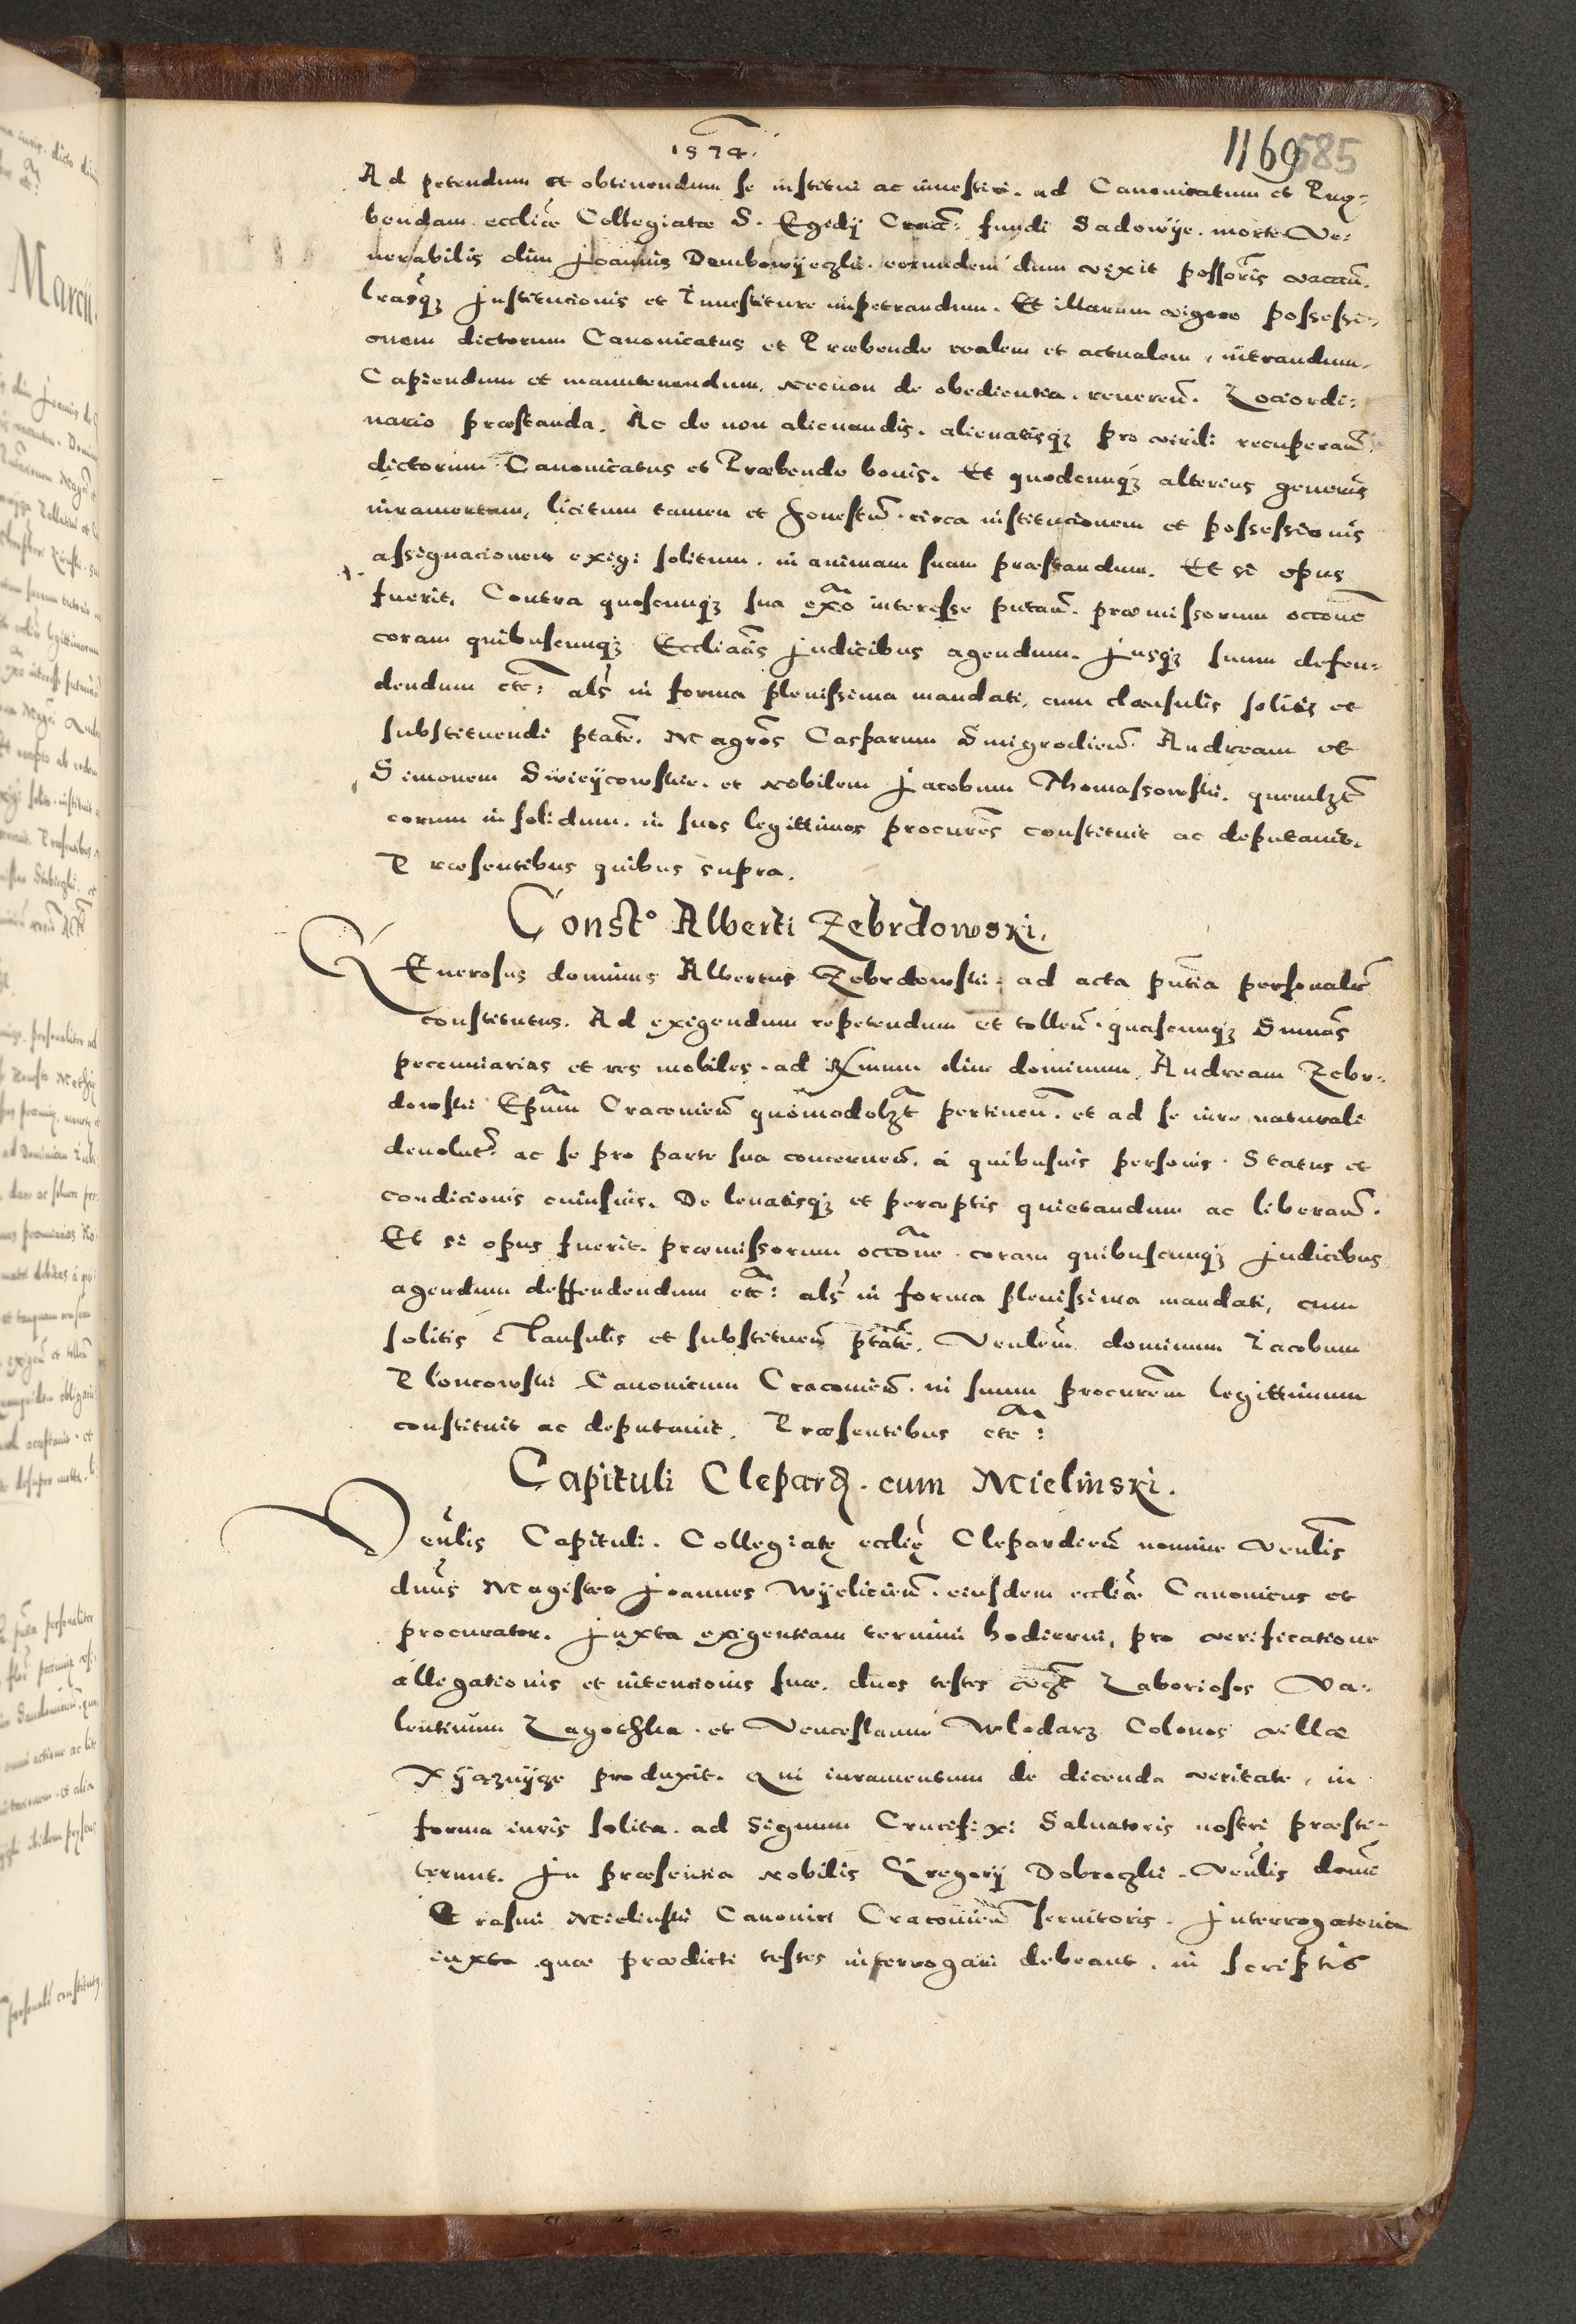 1574.
1169 585
Ad petendum et obtinendum se institui ac inuestiri. ad Canonicatum et Præ-
bendam eccliæ Collegiatæ S. Egidij Crac: fundi Sadowije. morte Ve-
nerabilis olim Joannis Dembowijeczki. eorundem dum vixit possoris vacan.
lrasqz Institucionis et Inuestiture impetrandum. Et illarum vigore possessi-
onem dictorum Canonicatus et Præbende realem et actualem, intrandum.
Capiendum et manutenendum, necnon de obedientia. reueren. Lociordi-
nario præstanda. Ac de non alienandis. alienatisqz pro virili recuperan.
dictorum Canonicatus et Præbende bonis. Et quodcunqz alterius generis
iuramentum, licitum tamen et honestum. circa institucionem et possessionis
assignacionem exigi solitum. in animam suam præstandum. Et si opus
fuerit. Contra quoscunqz sua exão interesse putan. præmissorum occone
coram quibuscunqz Eccliacis Judicibus agendum. Jusqz suum defen-
dendum etc: als in forma plenissima mandati, cum clausulis solitis et
substituendi ptate. Magros Casparum Smigrodien. Andream et
Simonem Swieijcowskie. et nobilem Jacobum Thomassowski. quemlzt
eorum in solidum. in suos legittimos procures constituit ac deputauit.
Præsentibus quibus supra.
Const.o Alberti Zebrdowski.
GEnerosus dominus Albertus Zebrdowski. ad acta pntia personalr
constitutus. Ad exigendum repetendum et tollen. quascunqz Summas
pecuniarias et res mobiles. ad Rmum olim dominum Andream Zebr-
dowski Epum Cracouien quomodolzt pertinen. et ad se iure naturali
deuolut. ac se pro parte sua concernen. a quibusuis personis. Status et
condicionis cuiusuis. De leuatisqz et perceptis quietandum ac liberan.
Et si opus fuerit. præmissorum occone. coram quibuscunqz Judicibus
agendum deffendendum etc: als in forma plenissima mandati, cum
solitis Clausulis et substituen ptate. Venlem dominum Jacobum
Ploncowski Canonicum Cracouien. in suum procurem legittimum
constituit ac deputauit. Præsentibus etc:
Capituli Clepard. cum Mielinski.
Venlis Capituli. Collegiatę ecclię Clepardien nomine Venlis
dnus Magister Joannes Wijelicien. eiusdem eccliæ Canonicus et
procurator. Juxta exigentiam termini hodierni, pro verificatione
allegationis et intencionis suæ. duos testes vzt Laboriosos Va-
lentinum Zagothka. et Venceslaum Wlodarz Colonos villæ
Xijaznijze produxit. Qui iuramentum de dicenda veritate, in
forma iuris solita. ad Signum Crucifixi Saluatoris nostri præsti-
terunt. In præsentia nobilis Gregorij Dobroczki. Venlis domi
Erasmi Mielinski Canonici Cracouien seruitoris. Interrogatoria
iuxta quæ prædicti testes interrogari debeant. in scriptis